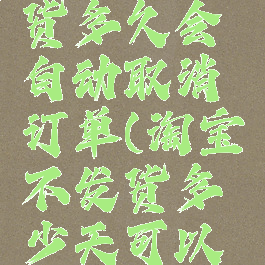 货多久会
自动取消
订单(淘宝
不发货多
少天可以